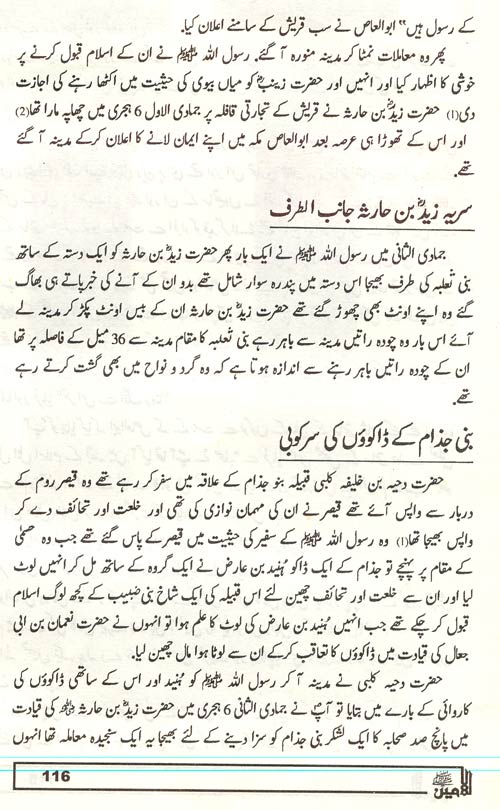 کے رسول ہیں“ ابوالعاص نے سب قریش کے سامنے اعلان کیا۔
پھر وہ معاملات نمٹا کر مدینہ منورہ آ گئے۔ رسول اللہ ﷺ نے ان کے اسلام قبول کرنے پر
خوشی کا اظہار کیا اور انہیں اور حضرت زینبؓ کو میاں بیوی کی حیثیت میں اکٹھا رہنے کی اجازت
دی(1) حضرت زیدؓ بن حارثہ نے قریش کے تجارتی قافلہ پر جمادی الاول 6 ہجری میں چھاپہ مارا تھا(2)
اور اس کے تھوڑا ہی عرصہ بعد ابوالعاص مکہ میں اپنے ایمان لانے کا اعلان کرکے مدینہ آ گئے
تھے۔
سریہ زیدؓ بن حارثہ جانب الطرف
جمادی الثانی میں رسول اللہ ﷺ نے ایک بار پھر حضرت زیدؓ بن حارثہ کو ایک دستہ کے ساتھ
بنی ثعلبہ کی طرف بھیجا اس دستہ میں پندرہ سوار شامل تھے بدو ان کے آنے کی خبر پاتے ہی بھاگ
گئے وہ اپنے اونٹ بھی چھوڑ گئے تھے حضرت زیدؓ بن حارثہ ان کے بیس اونٹ پکڑ کر مدینہ لے
آئے اس بار وہ چودہ راتیں مدینہ سے باہر رہے بنی ثعلبہ کا مقام مدینہ سے 36 میل کے فاصلہ پر تھا
ان کے چودہ راتیں باہر رہنے سے اندازہ ہوتا ہے کہ وہ گرد و نواح میں بھی گشت کرتے رہے
تھے۔
بنی جذام کے ڈاکوؤں کی سرکوبی
حضرت دحیہ بن خلیفہ کلبی قبیلہ بنو جذام کے علاقہ میں سفر کر رہے تھے وہ قیصر روم کے
دربار سے واپس آئے تھے قیصر نے ان کی مہمان نوازی کی تھی اور خلعت اور تحائف دے کر
واپس بھیجا تھا(1) وہ رسول اللہ ﷺ کے سفیر کی حیثیت میں قیصر کے پاس گئے تھے جب وہ حسمٰی
کے مقام پر پہنچے تو جذام کے ایک ڈاکو ہُنید بن عارض نے ایک گروہ کے ساتھ مل کر انہیں لوٹ
لیا اور ان سے خلعت اور تحائف چھین لئے اس قبیلہ کی ایک شاخ بنی ضبیب کے کچھ لوگ اسلام
قبول کر چکے تھے جب انہیں ہُنید بن عارض کی لوٹ کا علم ہوا تو انہوں نے حضرت نعمان بن ابی
جعال کی قیادت میں ڈاکوؤں کا تعاقب کرکے ان سے لوٹا ہوا مال چھین لیا۔
حضرت دحیہ کلبی نے مدینہ آ کر رسول اللہ ﷺ کو ہُنید اور اس کے ساتھی ڈاکوؤں کی
کاروائی کے بارے میں بتایا تو آپؐ نے جمادی الثانی 6 ہجری میں حضرت زیدؓ بن حارثہ کی قیادت
میں پانچ صد صحابہ کا ایک لشکر بنی جذام کو سزا دینے کے لئے بھیجا یہ ایک سنجیدہ معاملہ تھا انہوں
116